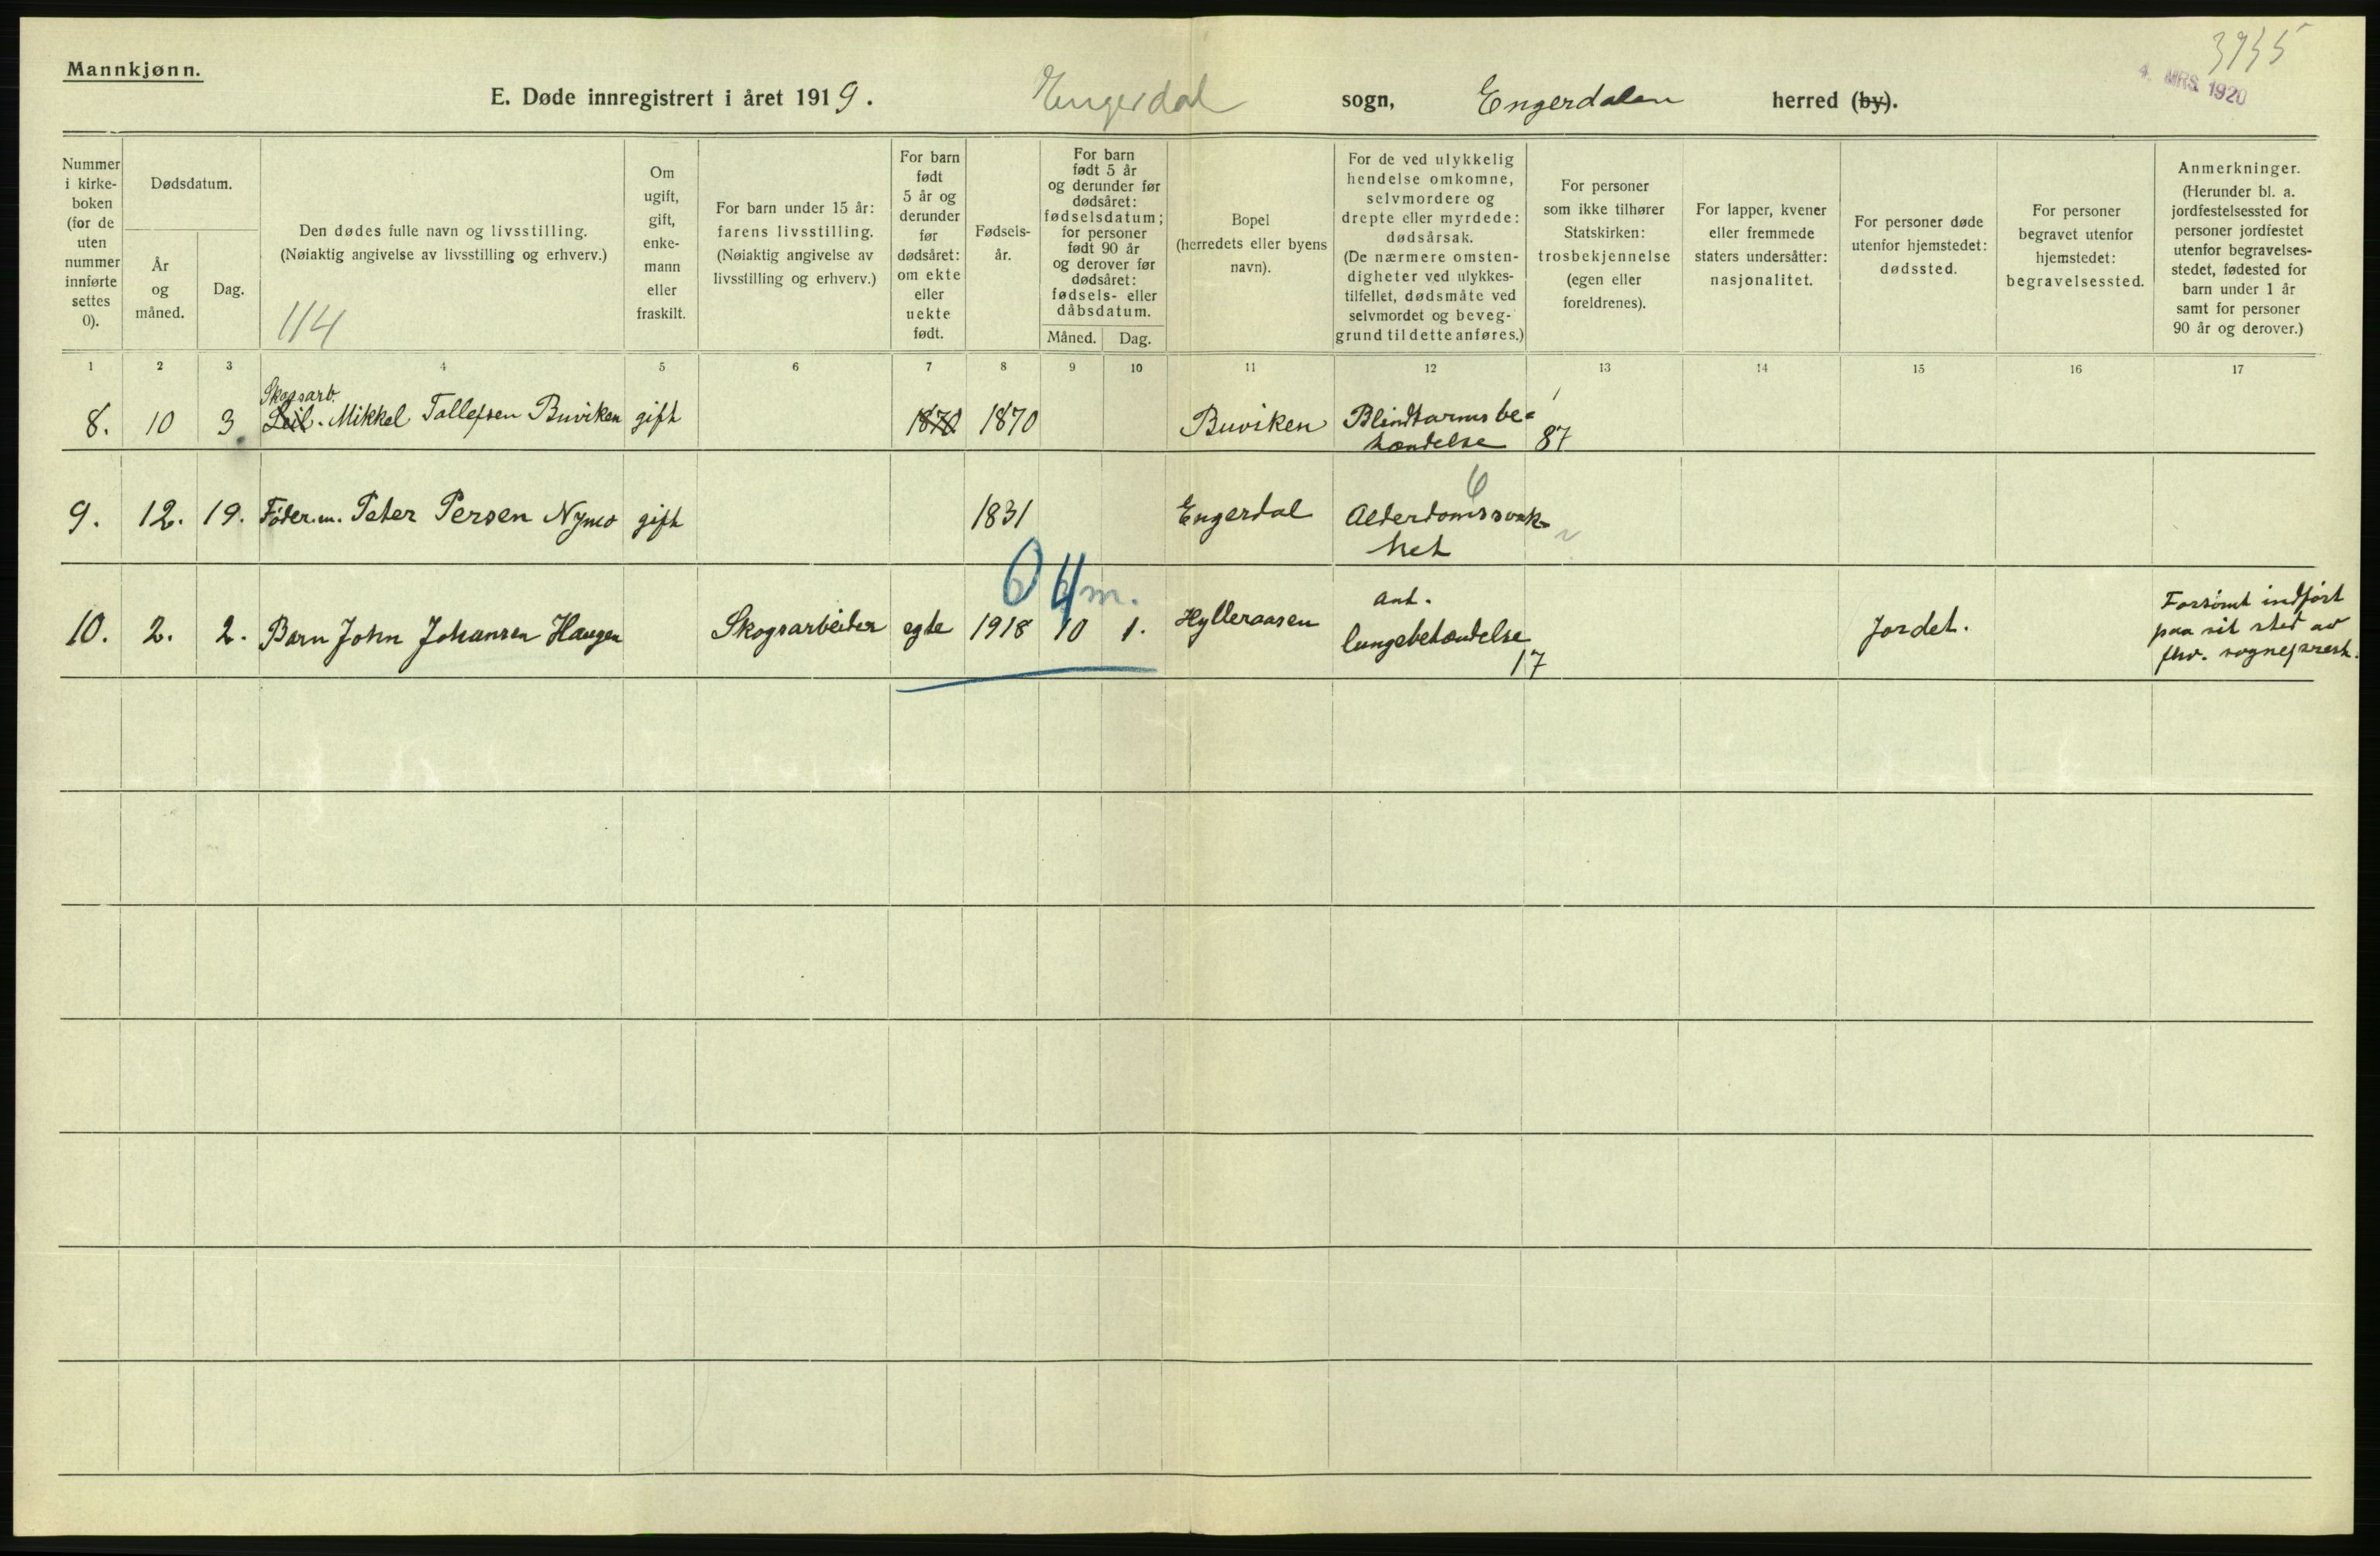 3935
4. MRS. 1920
Mannkjønn.
E. Døde innregistrert i året 1919. Engerdal sogn, Engerdalen herred (by).
Nummer i kirke-boken (for de uten nummer innførte settes 0).
Dødsdatum.
År og måned.
Dag.
Den dødes fulle navn og livsstilling.
(Nøiaktig angivelse av livsstilling og erhverv.)
114
Om ugift, gift, enke-mann eller fraskilt.
For barn under 15 år: farens livsstilling. (Nøiaktig angivelse av livsstilling og erhverv.)
For barn født 5 år og derunder før dødsåret: om ekte eller uekte født.
Fødsels-år.
For barn født 5 år og derunder før dødsåret: fødselsdatum; for personer født 90 år og derover før dødsåret: fødsels- eller dåbsdatum.
Måned.
Dag.
Bopel (herredets eller byens navn).
For de ved ulykkelig hendelse omkomne, selvmordere og drepte eller myrdede: dødsårsak. (De nærmere omsten-digheter ved ulykkes-tilfellet, dødsmåte ved selvmordet og beveg-grund til dette anføres.)
For personer som ikke tilhører Statskirken: trosbekjennelse (egen eller foreldrenes).
For lapper, kvener eller fremmede staters undersåtter: nasjonalitet.
For personer døde utenfor hjemstedet: dødssted.
For personer begravet utenfor hjemstedet: begravelsessted.
Anmerkninger. (Herunder bl. a. jordfestelsessted for personer jordfestet utenfor begravelses-stedet, fødested for barn under 1 år samt for personer 90 år og derover.)
1 2 3 4 5 6 7 8 9 10 11 12 13 14 15 16 17
Skogsarb.
8. 10 3 Mikkel Tollefsen Buviken gift 1870 1870 Buviken Blindtarmsbe-
tændelse 87
9. 12. 19. Föder.m. Peter Persen Nymo gift 1831 Engerdal Alderdomssvak-
het
6
04m.
10. 2. 2. Barn John Johansen Haugen Skogsarbeider egte 1918 10 1. Hylleraasen ant.
lungebetændelse
17
Jordet.
Forsömt indfört
paa sit sted av
fhv. sogneprest.